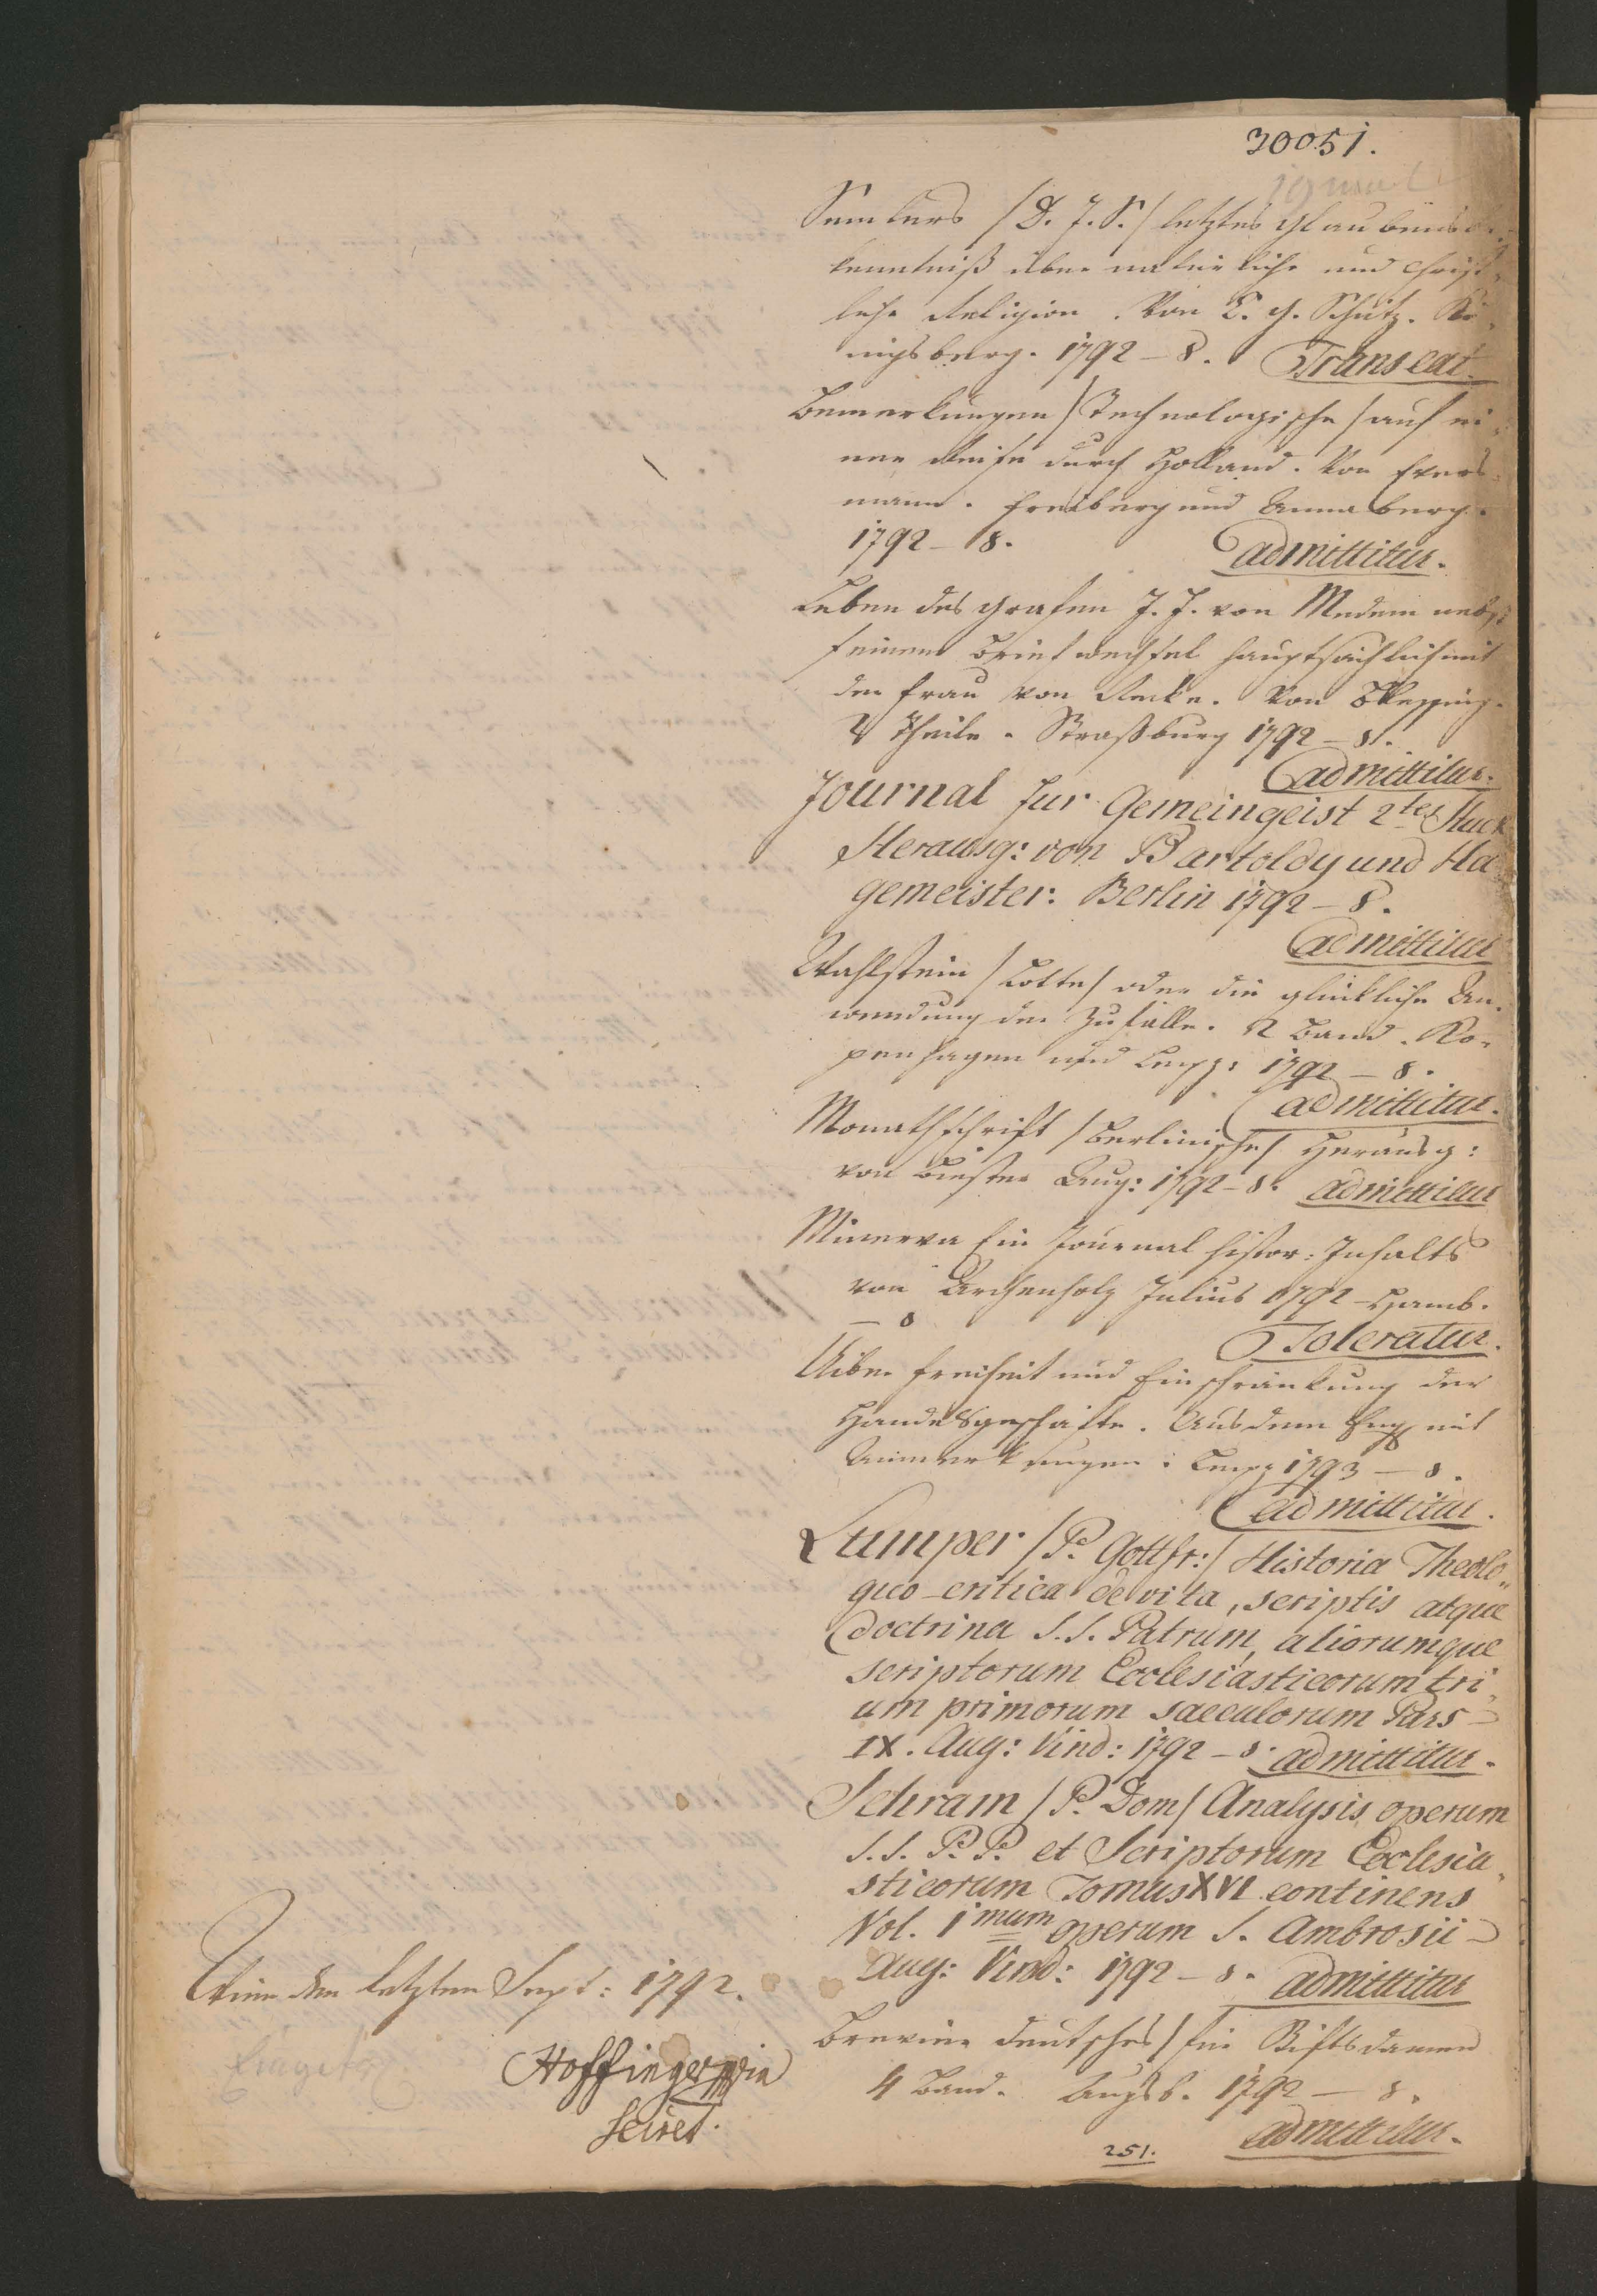 30051.
Semlers /D. J. S./ letztes Glaubensbe-
kenntniß über natürliche und christ-
liche Religion. Von C. G. Schütz. Kö-
nigsberg. 1792 – 8. Transeat.
Bemerkungen /Technologische/ auf ei-
ner Reise durch Holland. Von Evers-
mann. Freiberg und Annaberg.
1792 – 8. admittitur.
Leben des Grafen J. F. von Medem nebst
seinem Briefwechsel hauptsächlich mit
der Frau von Recke. Von
2 Theile. Straßburg 1792 – 8.
admittitur.
Journal fur Gemeingeist 2tes Stuck
Herausg: von Bartoldy und Ha-
gemeister: Berlin 1792 – 8.
admittitur
Wahlstein /Lotte/ oder die glückliche An-
wendung der Zufälle. 2 Band. Ko-
penhagen und Leipz: 1792 – 8.
admittitur.
Monathschrift /Berlinische/ Herausg:
von Biester Aug: 1792 – 8. admittitur
Minerva Ein Journal histor: Inhalts
von Archenholz Julius 1792 – Hamb.
– 8
Toleratur.
Uiber Freiheit und Einschränkung der
Handelsgeschäfte. Aus dem Engl mit
Anmerkungen: Leipz 1793 – 8.
admittitur.
Lumper /P. Gottfr:/ Historia Theolo„
gico-critica de vita, scriptis atque
doctrina S.S. Patrum, aliorumque
scriptorum Ecclesiasticorum tri„
um primorum saeculorum Pars –
IX. Aug: Vind: 1792 – 8. admittitur.
Schram /P. Dom/ Analysis operum
S.S. P.P. et Scriptorum Ecclesia„
sticorum Tomus XVI continens
Vol. 1mum operum S. Ambrosii –
Aug: Vind: 1792 – 8. admittitur
Brevier deutsches/ für Stiftsdamen
4 Band. Augsb. 1792 – 8.
admittitur.
251.
Wien den letzten Sept: 1792.
Hoffinger
Secret.